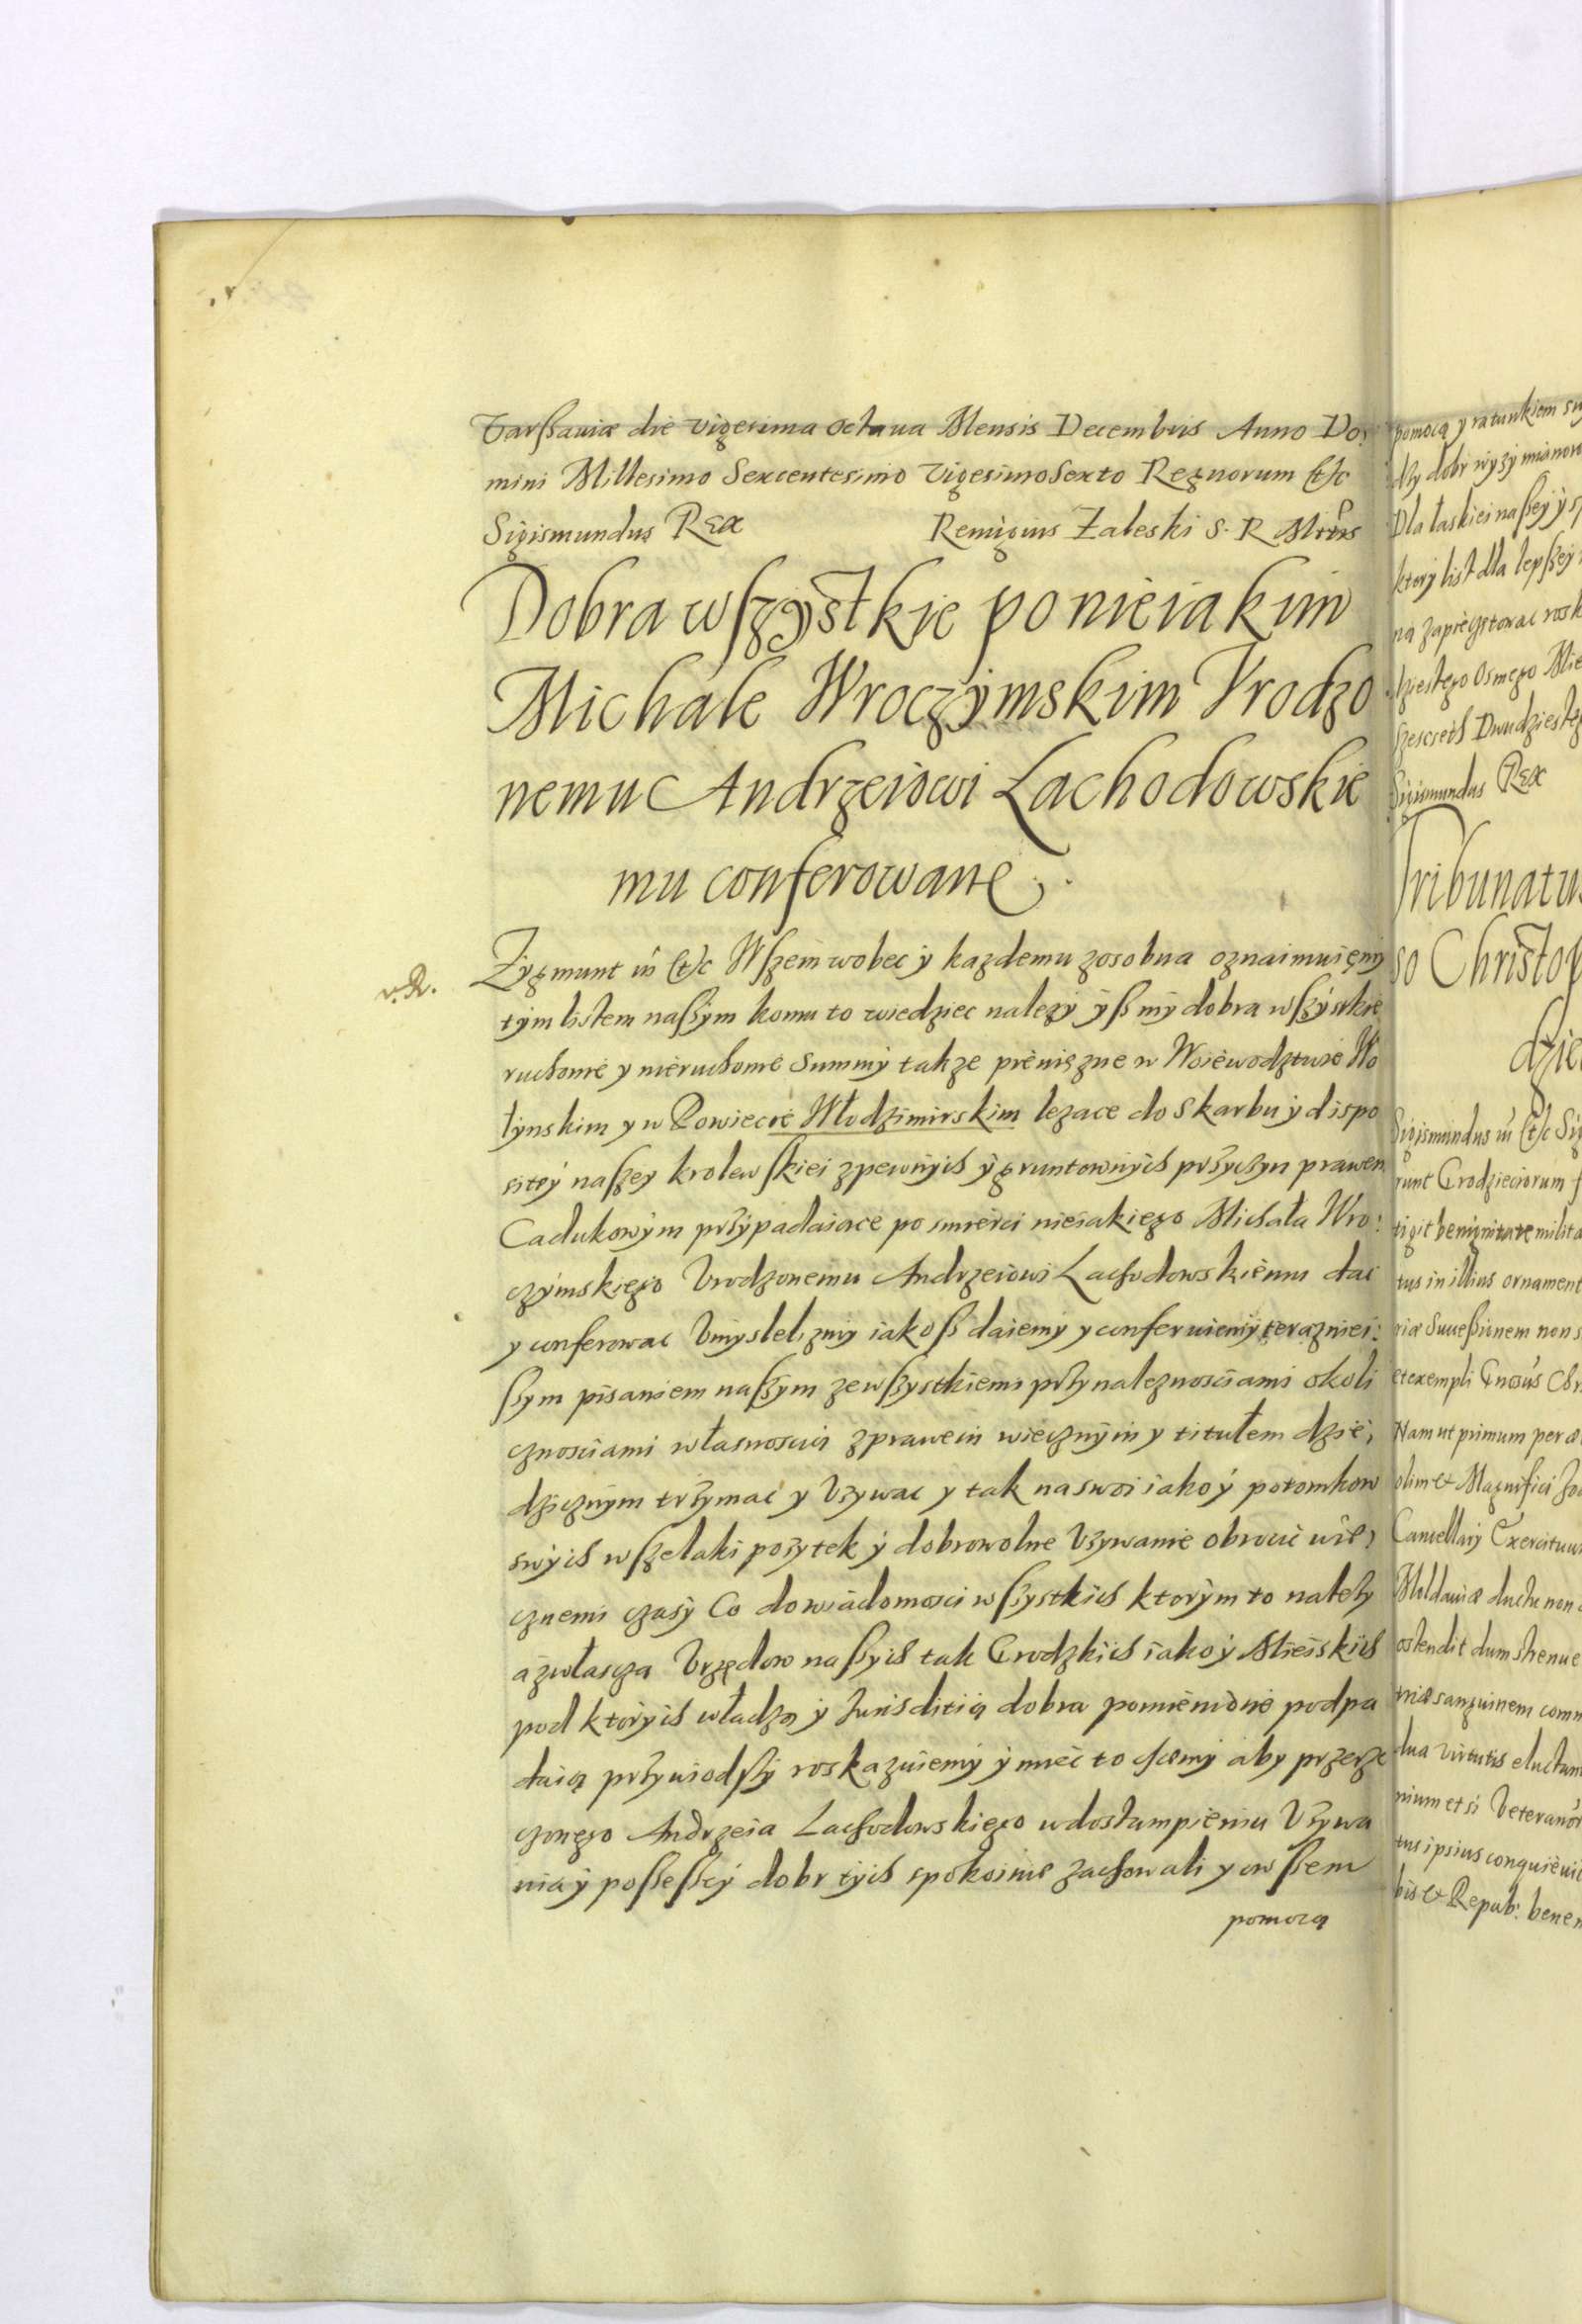 Varßauiæ die vigesima octaua Mensis Decembris Anno Do:
mini Millesimo Sexcentesimo Vigesimosexto Regnorum (et)c
Sigismundus Rex Remigius Zaleski S. R Mttis
Dobra wszystkie po nieiakim
Michale Wroczymskim Vrodzo
nemu Andrzeiowi Lachodowskie
mu conferowane.
v. R.
Zygmunt iii (et)c Wszem wobec y kazdemu zosobna oznaimuięmy
tym listem naßym komu to wiedziec nalezy yß my dobra wßystkie
ruchome y nieruchome Summy takze pienięzne w Woiewodztwie Wo
łynskim y w Powiecie Włodzimirskim lezace do Skarbu y dispo
sitiy naszey krolewskiei z pewnych y gruntownych przyczyn prawem
Cadukowym przypadaiace po smierci nieiakiego Michała Wro:
czymskiego Vrodzonemu Andrzeiowi Lachodowskiemu dac
y conferowac Vmyslelizmy iakoß daiemy y conferuiemy terazniei:
ßym pisaniem naßym ze wßystkiemi przynaleznosciami okoli
cznosciami własnoscią z prawem wiecznym y titułem dzie,
dzicznym trzymac y Vzywac y tak na swoi iako y potomkow
swych wszelaki pozytek y dobrowolne Vzywanie obrocic wie,
cznemi czasy Co do wiadomosci wßystkich ktorym to nalezy
a zwłascza Vrzędow naßych tak Grodzkich iako y Mieiskich
pod ktorych władzą y Iurisditią dobra pomienione podpa
daią przywiodßy roskazuiemy y miec to chcemy aby przerze
czonego Andrzeia Lachodowskiego w dostąmpieniu Vzywa
nia y poßeßiy dobr tych spokoinie zachowali y owßem
pomocą
pomocą y ratunkiem
dobr wyzy
Dla łaski ei naßey y
ktory list dla lepßey
na zapieczętowac
dziestego Osmego
Dwudziesteg
Sigismundus Rex
Tribunatus
so Christop
dzie
Sigismundus iii (et)c
runt Grodzieciorum
tigit benignitate milita
tus in illius ornament
riæ Sucessionem non
et exempli Gnosus
Nam ut primum per
olim & Magnifici
Cancellarij Exercituum
Moldauiæ ductu non
ostendit dum strenue
triæ sanguinem
tua virtutis
nium etsi Veteranor
tus ipsius conquieuit
bis & Repub: bene